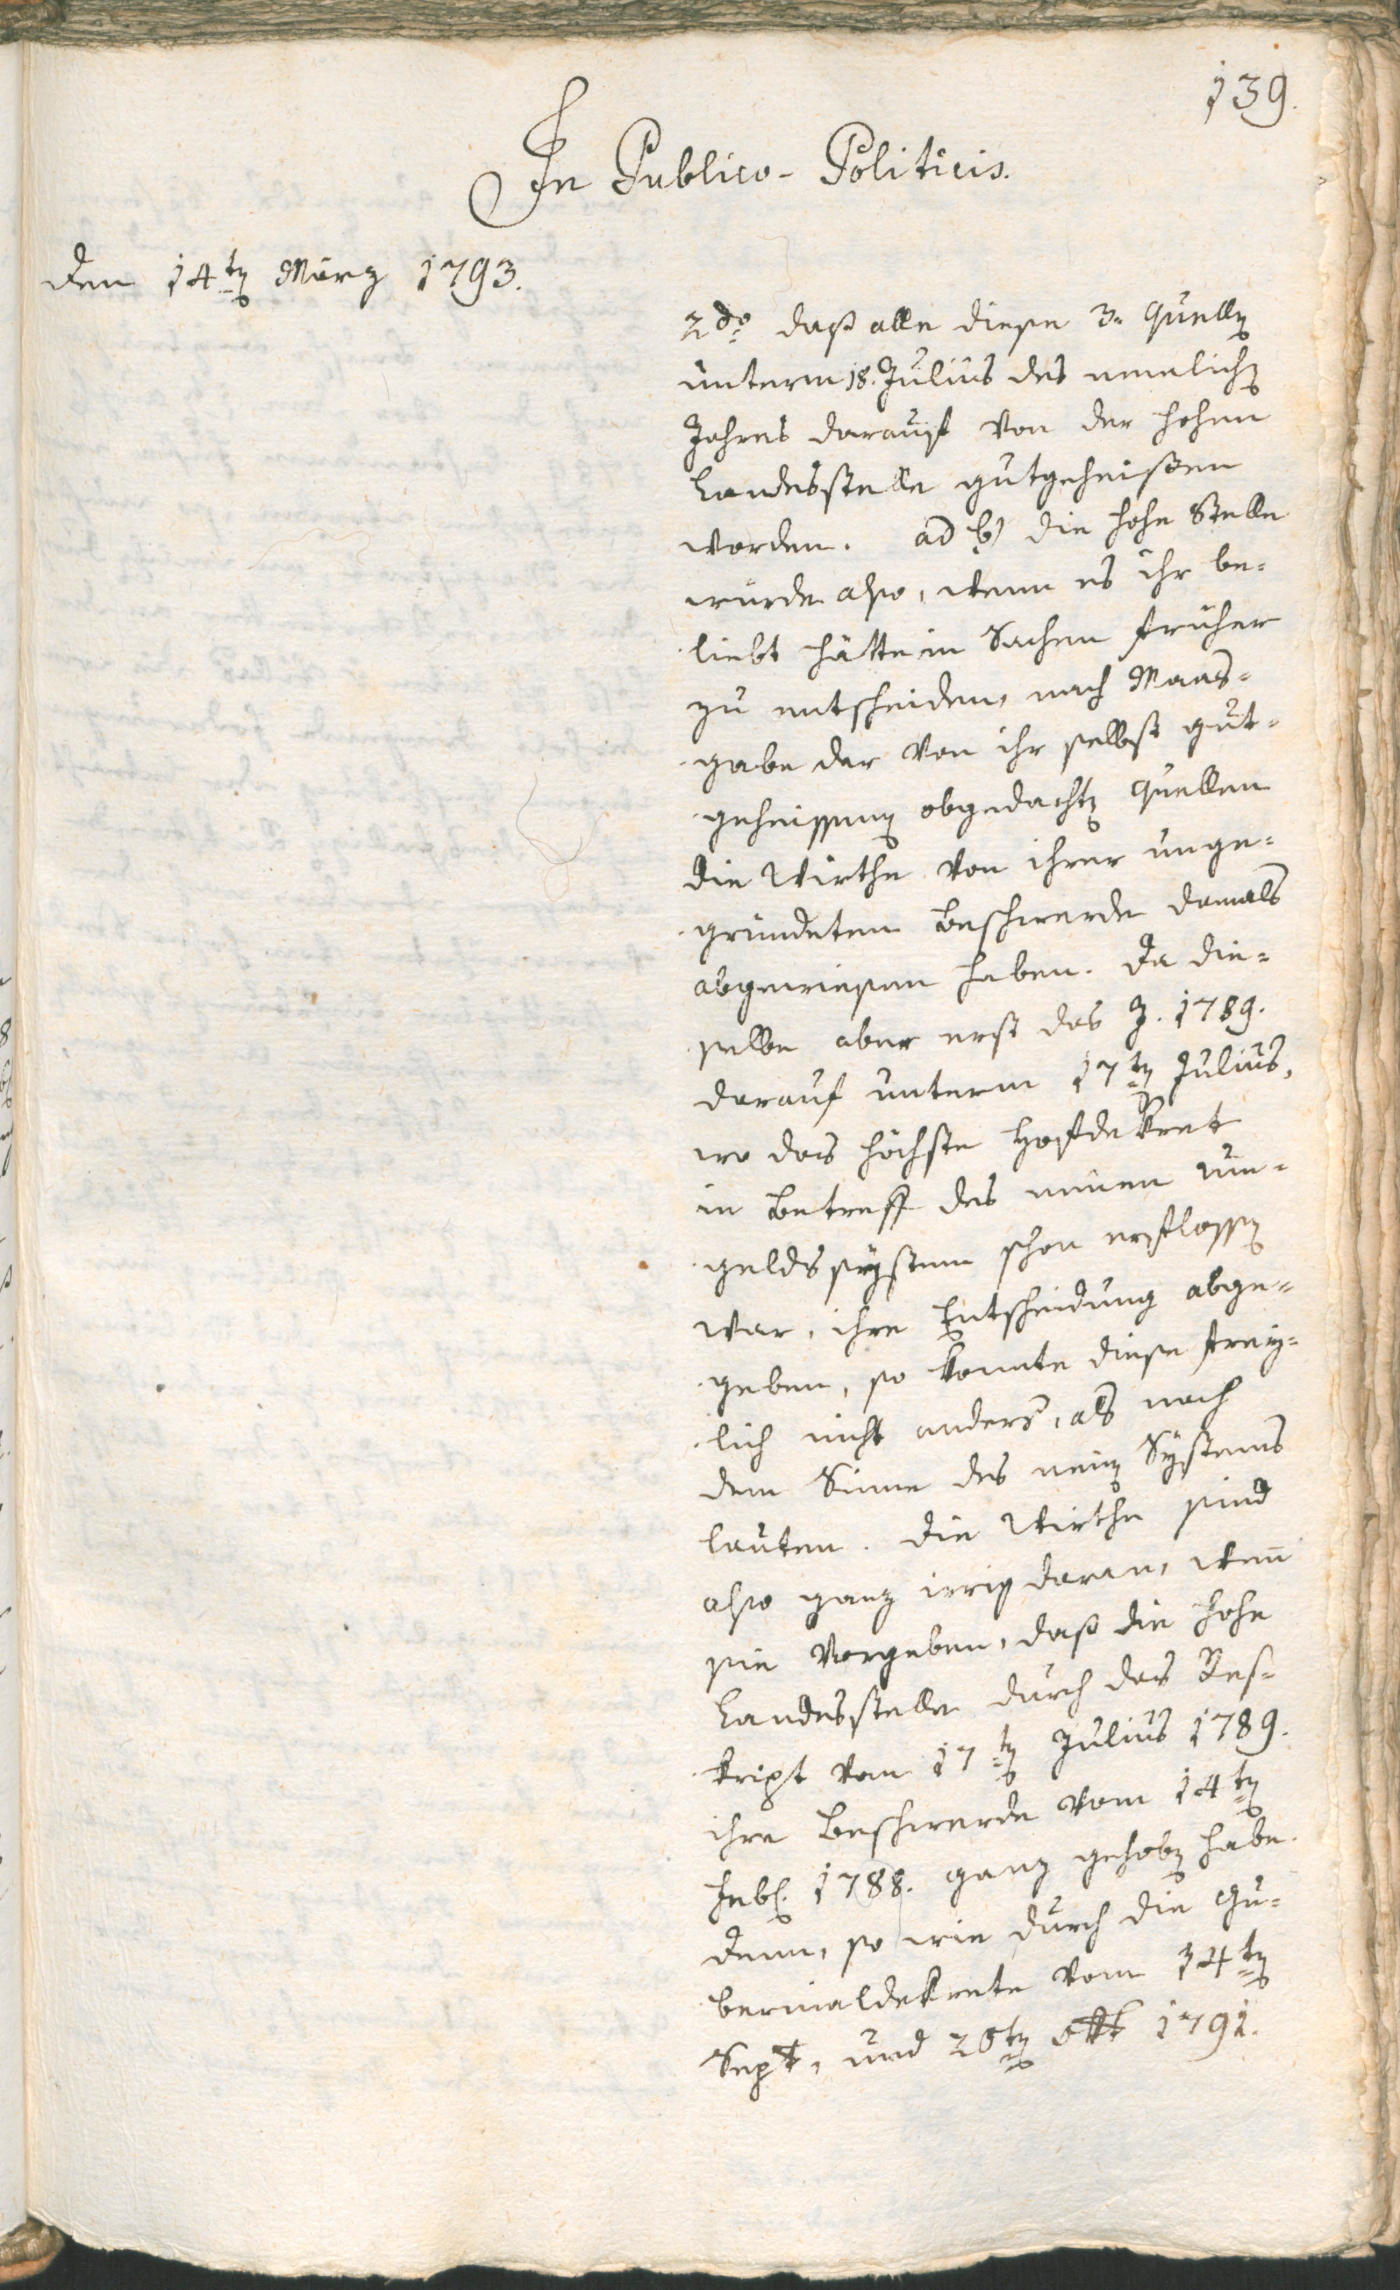 139.
In Publico-Politicis.
den 14ten März 1793.
2do daß alle diese 3. Quellen
unterm 18. Julius des nemlichen
Jahres darauf von der hohen
Landesstelle gutgeheißen
worden. ad b) die hohe Stelle
würde also, wenn es ihr be-
liebt hätte in Sachen früher
zu entscheiden, nach Maas-
gabe der von ihr selbst gut-
geheissenen obgedachten Quellen
die Wirthe von ihrer unge-
gründeten Beschwerde damals
abgewiesen haben. Da die-
selbe aber erst das J. 1789.
darauf unterm 17ten Julius,
wo das höchste Hofdekret
in Betreff des neuen um-
geldssystem schon erflossen
war, ihre Entscheidung abge-
geben, so konnte diese frey-
lich nicht anders, als nach
dem Sinne des neuen Systems
lauten. Die Wirthe sind
also ganz irrig daran, wenn
sie vorgeben, daß die hohe
Landesstelle durch das Res-
kript vom 17ten Julius 1789.
ihre Beschwerde vom 14ten
Febr. 1788. ganz gehoben habe.
denn, so wie durch die Gu-
bernialdekrete vom 14ten
Sept, und 28ten Okt 1791.